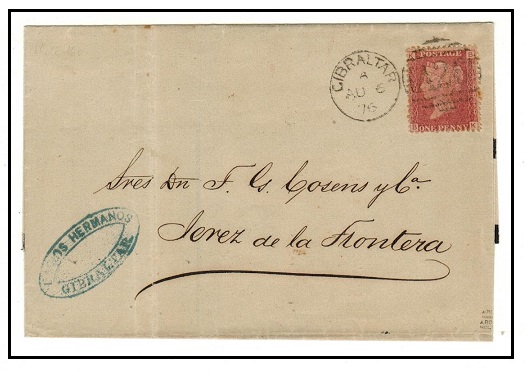 GIBRALTAR
A
AU 6
76
POSTAGE
ONE PENNY
Sres Dn F. G. Cosens y Ca.
Jerez de la Frontera
HERMANOS
GIBRALTAR